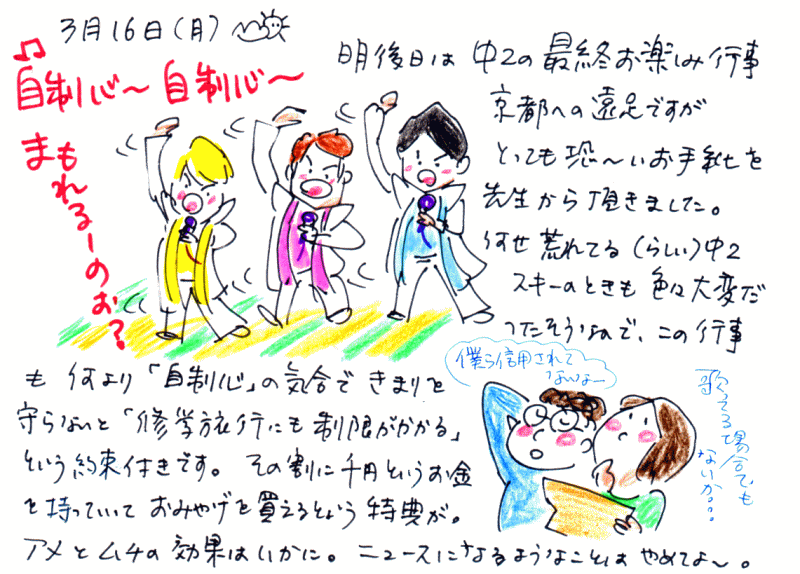 3月16日(月)
♫
自制心〜自制心〜
まもれるーのぉ?
明後日は 中2の最終お楽しみ行事
京都への遠足ですが
とっても恐〜いお手紙を
先生から頂きました。
何せ荒れてる(らしい)中2
スキーのときも色々大変だ
ったそうなので、この行事
も 何より「自制心」の気合で きまりを
守らないと「修学旅行にも制限がかかる」
という約束付きです。 その割に千円というお金
を持っていて おみやげを買えるという特典が。
アメとムチの効果はいかに。 ニュースになるようなことは やめてよ〜。
僕ら信用されて
ないなー
歌ってる場合でも
ないか...